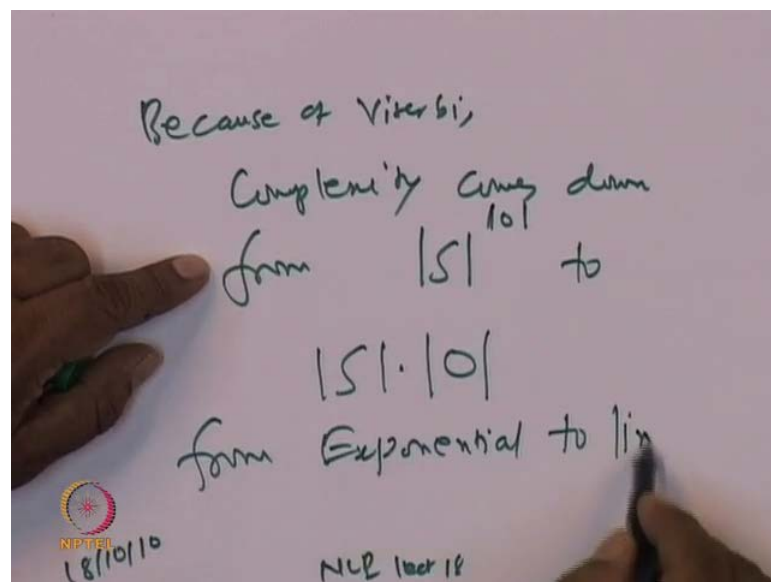 Because of Viterbi,
Complexity comes down
from |S|^|O| to
|S|.|O|
from Exponential to lin
NPTEL
18/10/10
NLP lect 18